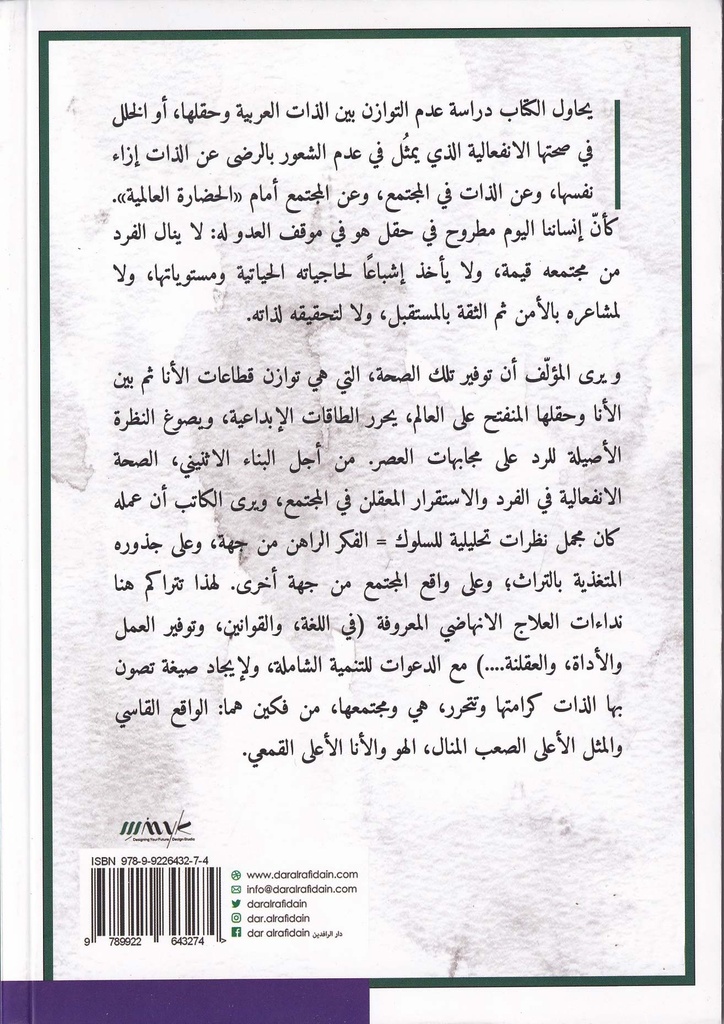 يحاول الكتاب دراسة عدم التوازن بين الذات العربية وحقلها، أو الخلل
في صحتها الانفعالية الذي يمثُل في عدم الشعور بالرضى عن الذات إزاء
نفسها، وعن الذات في المجتمع، وعن المجتمع أمام «الحضارة العالمية».
كأنّ إنساننا اليوم مطروح في حقل هو في موقف العدو له: لا ينال الفرد
من مجتمعه قيمة، ولا يأخذ إشباعاً لحاجياته الحياتية ومستوياتها، ولا
لمشاعره بالأمن ثم الثقة بالمستقبل، ولا لتحقيقه لذاته.
ويرى المؤلّف أن توفير تلك الصحة، التي هي توازن قطاعات الأنا ثم بين
الأنا وحقلها المنفتح على العالم، يحرر الطاقات الإبداعية، ويصوغ النظرة
الأصيلة للرد على مجابهات العصر. من أجل البناء الاثنيني، الصحة
الانفعالية في الفرد والاستقرار المعقلن في المجتمع، ويرى الكاتب أن عمله
كان مجمل نظرات تحليلية للسلوك = الفكر الراهن من جهة، وعلى جذوره
المتغذية بالتراث؛ وعلى واقع المجتمع من جهة أخرى. لهذا تتراكم هنا
نداءات العلاج الانهاضي المعروفة (في اللغة، والقوانين، وتوفير العمل
والأداة، والعقلنة....) مع الدعوات للتنمية الشاملة، ولإيجاد صيغة تصون
بها الذات كرامتها وتتحرر، هي ومجتمعها، من فكين هما: الواقع القاسي
والمثل الأعلى الصعب المنال، الهو والأنا الأعلى القمعي.
Designing Your Future | Design Studio
ISBN 978-9-9226432-7-4
9 789922 643274 >
www.daralrafidain.com
info@daralrafidain.com
daralrafidain
dar.alrafidain
dar alrafidain دار الرافدين